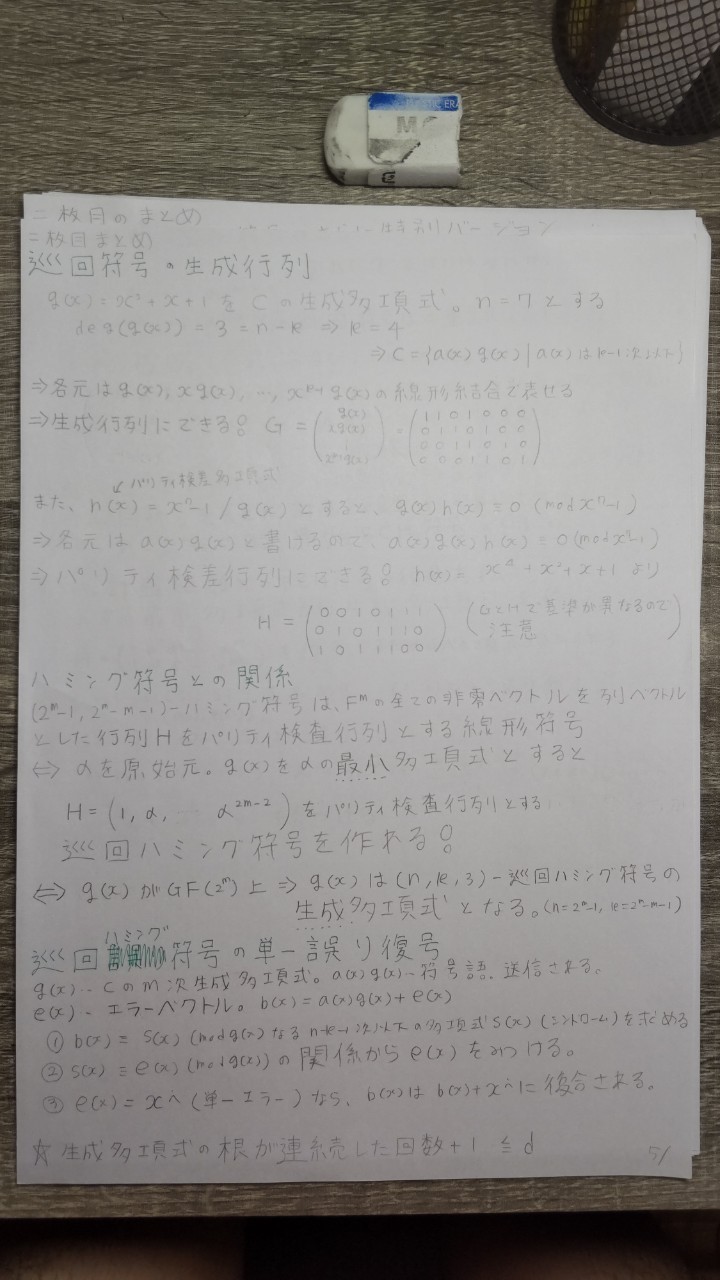 M
二枚目のまとめ
特別バージョン
二枚目まとめ
巡回符号の生成行列
g(x) = x³+x+1 を C の生成多項式。n=7とする
deg(g(x)) = 3 = n-k ⇒ k=4
⇒ C={a(x)g(x) | a(x)はk-1次以下}
⇒各元は g(x), xg(x), …, xᵏ⁻¹g(x)の線形結合で表せる
⇒生成行列にできる! G = ( g(x) xg(x) ⋮ xᵏ⁻¹g(x) ) = ( 1101000 0110100 0011010 0001101 )
↙パリティ検差多項式
また、h(x) = xⁿ-1/g(x) とすると、g(x)h(x) ≡ 0 (mod xⁿ-1)
⇒各元は a(x)g(x)と書けるので、a(x)g(x)h(x) ≡ 0 (mod xⁿ-1)
⇒パリティ検差行列にできる! h(x) = x⁴+x²+x+1 より
H = ( 0010111 0101110 1011100 ) (GとHで基準が異なるので注意)
ハミング符号との関係
(2ᵐ-1, 2ᵐ-m-1)-ハミング符号は、Fᵐの全ての非零ベクトルを列ベクトル
とした行列Hをパリティ検査行列とする線形符号
⇔ αを原始元。g(x)をαの最小多項式とすると
H = (1, α, … α²ᵐ⁻²) をパリティ検査行列とする
巡回ハミング符号を作れる!
⇔ g(x)がGF(2ᵐ)上 ⇒ g(x)は(n,k,3)-巡回ハミング符号の
生成多項式となる。(n=2ᵐ-1, k=2ᵐ-m-1)
巡回ハミング符号の単一誤り復号
g(x)… Cのm次生成多項式。a(x)g(x)…符号語、送信される。
e(x)… エラーベクトル。b(x)=a(x)g(x)+e(x)
① b(x) ≡ s(x) (mod g(x))なるn-k-1次以下の多項式s(x) (シンドローム)を求める
② s(x) ≡ e(x) (mod g(x))の関係からe(x)をみつける。
③ e(x) = xⁱ (単一エラー)なら、b(x)はb(x)+xⁱに復合される。
☆ 生成多項式の根が連続した回数+1 ≦ d
5/